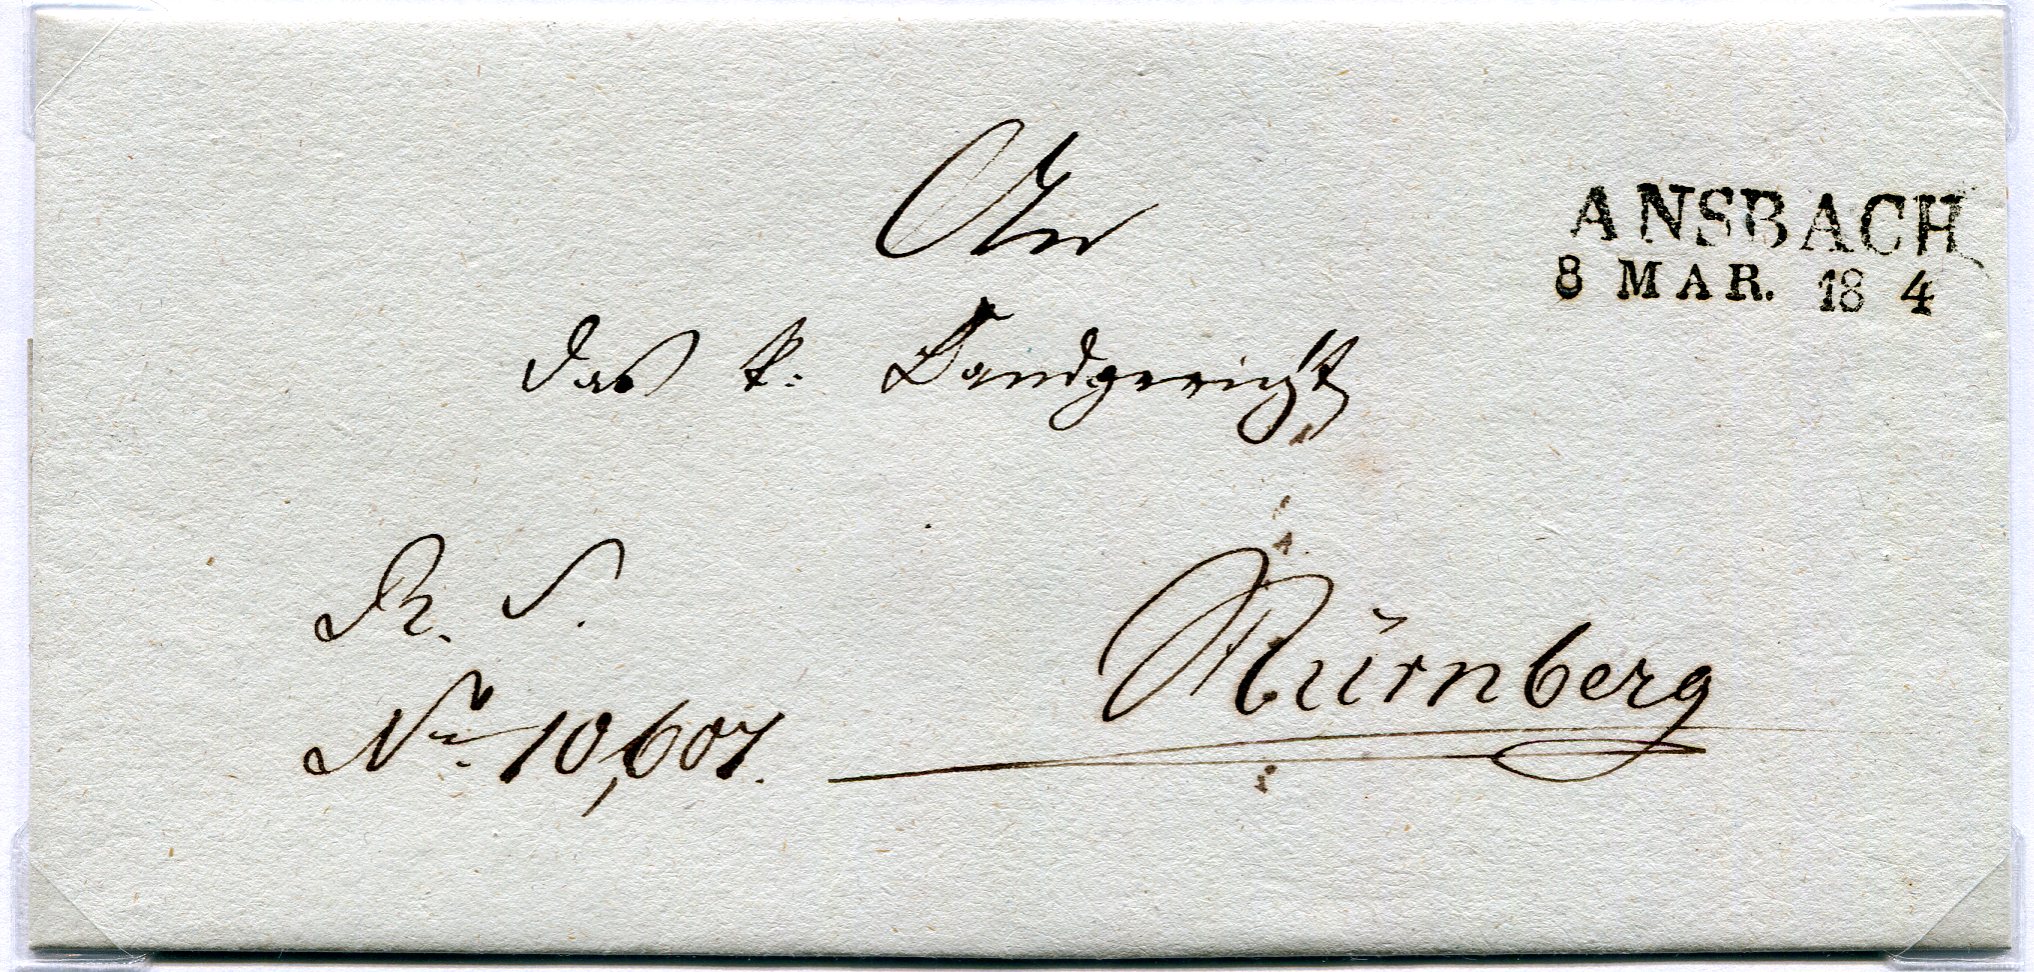 ANSBACH
8 MAR. 18 4
An
das k. Landgericht
R. S.
Nürnberg
Nro. 10,607.